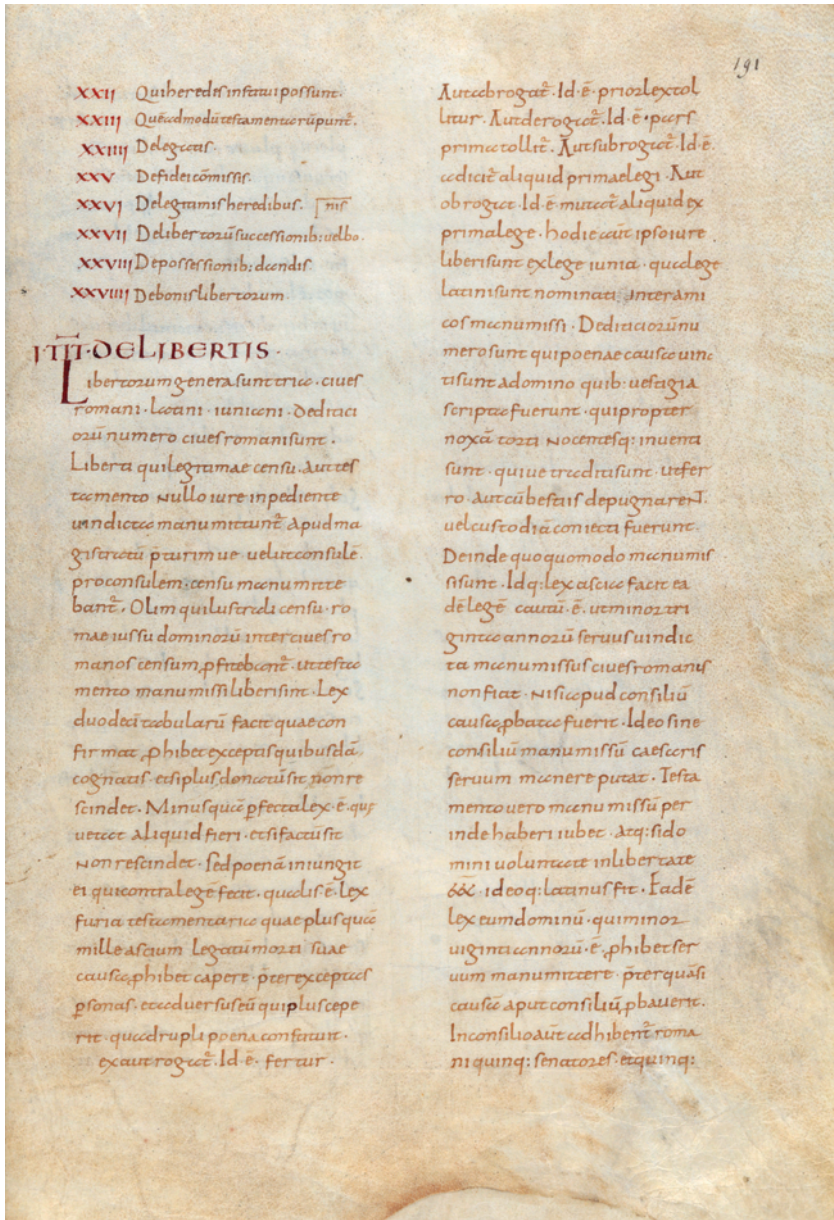 191
XXII Qui heredes institui possunt.
XXIII Quẽadmodũ testamenta rũpunt̃.
XXIIII De legatis.
XXV De fideicõmissis.
XXVI De legitimis heredibus. nis
XXVII De libertorũ successionib: uel bo
XXVIII De possessionib: dandis
XXVIIII De bonis libertorum
I TĪT̄ · DE LIBERTIS ·
Libertorum genera sunt tria · ciues
romani · latini · iuniani · deditici
orũ numero ciues romani sunt ·
Liberti qui legitimae censu · aut tes
tamento nullo iure inpediente
uindicta manumittunt̃ apud ma
gistratũ p̃turim ue uelut consulẽ
proconsulem · censu manumitte
bant̃ · Olim qui lustrali censu · ro
mae iussu dominorũ inter ciues ro
manos censum, ꝓfitebant̃ · ut testa
mento manumissi liberi sint · Lex
duodecĩ tabularũ facit quae con
firmat, ꝓhibet exceptis quibusdã,
cognatis · et si plus donatũ sit non re
scindet · Minus quã ꝑfecta lex · ẽ · quę
uetat aliquid fieri · et si factũ sit
non rescindet · sed poenã iniungit
ei qui contra legẽ fecit · qualis ẽ · Lex
furia testamentaria quae plus quã
mille assium legatũ morti suae
causa, ꝓhibet capere · p̃ter exceptas
ꝑsonas · et aduersus eũ qui plus cepe
rit · quadrupli poena constituit ·
ex aut rogat̃ · Id · ẽ · fertur ·
Aut abrogat̃ · Id · ẽ · prior lex tol
litur · Aut derogat̃ · Id · ẽ · pars
prima tollit̃ · Aut subrogat̃ · Id · ẽ ·
adicit̃ aliquid primae legi · Aut
obrogat · Id · ẽ mutat aliquid ex
prima lege · hodie aut̃ ipso iure
liberi sunt ex lege iunia · qua lege
latini sunt nominati inter ami
cos manumissi · Dediticiorũ nu
mero sunt qui poenae causa uinc
ti sunt a domino quib: uestigia
scripta fuerunt · qui propter
noxã torti nocentesq: inuenti
sunt · qui ue traditi sunt · ut fer
ro · aut cũ bestiis depugnareNT ·
uel custodiã coniecti fuerunt ·
Deinde quoquo modo manumis
si sunt · Idq: lex ascia facit ea
dẽ legẽ cautũ · ẽ · ut minor tri
ginta annorũ seruus uindic
ta manumissus ciues romanus
non fiat · nisi apud consiliũ
causa, ꝓbata fuerit · Ideo sine
consiliũ manumissũ caesaris
seruum manere putat · Testa
mento uero manumissũ per
inde haberi iubet · atq: si do
mini uoluntate in libertate
ideoq: latinus fit · Eadẽ
lex eum dominũ · qui minor
uiginti annorũ · ẽ, ꝓhibet ser
uum manumittere · p̃ter quãsi
causã aput consiliũ, ꝓbauerit ·
In consilio aut̃ adhibent̃ roma
ni quinq: senatores · et quinq: